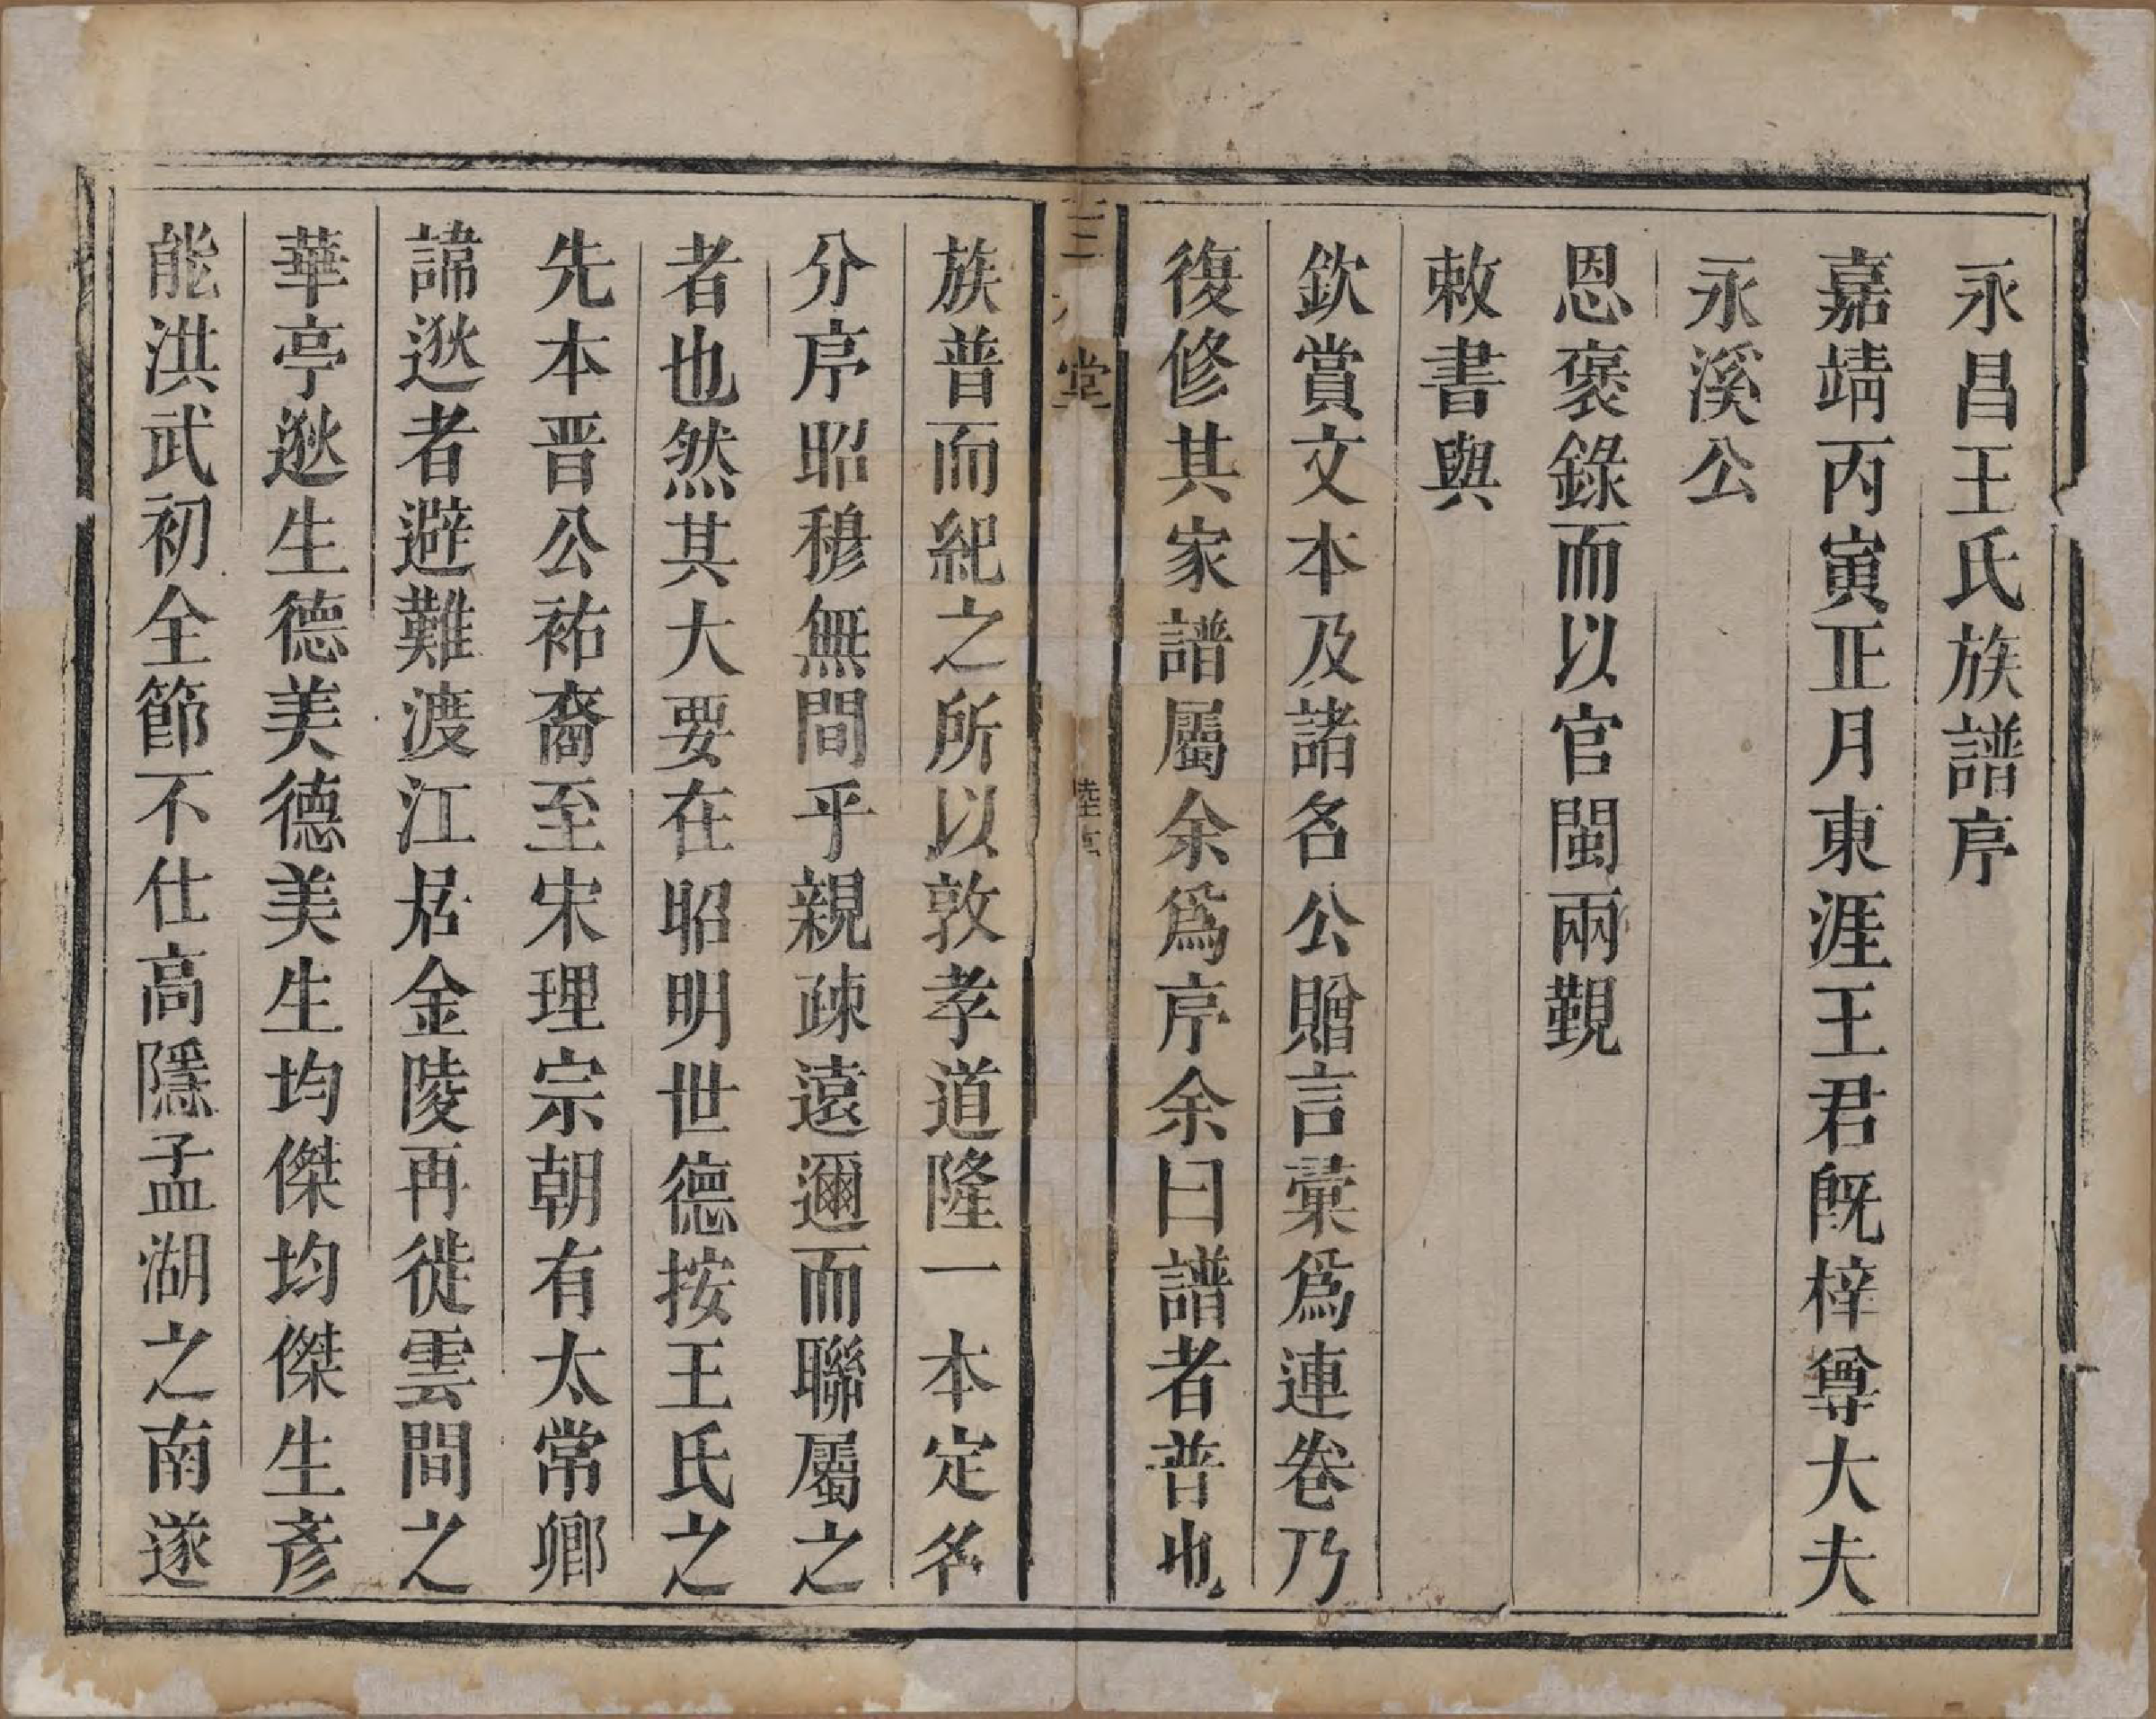 永昌王氏族譜序
嘉靖丙寅正月東涯王君旣梓尊大夫
永溪公
恩褒錄而以官閩兩觐
敕書與
欽賞文本及諸名公贈言彙爲連卷乃
復修其家譜屬余爲序余曰譜者普也
堂
族普而紀之所以敦孝道隆一本定名
分序昭穆無間乎親疎遠邇而聯屬之
者也然其大要在昭明世德按王氏之
先本晋公祐裔至宋理宗朝有太常卿
諱逖者避難渡江居金陵再徙雲間之
華亭逖生德美德美生均傑均傑生彥
能洪武初全節不仕高隱孟湖之南遂